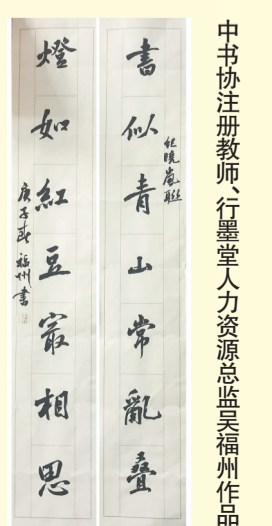 中书协注册教师、行墨堂人力资源总监吴福州作品
書似青山常亂叠
纪曉嵐聯
燈如紅豆最相思
庚子春 福州書